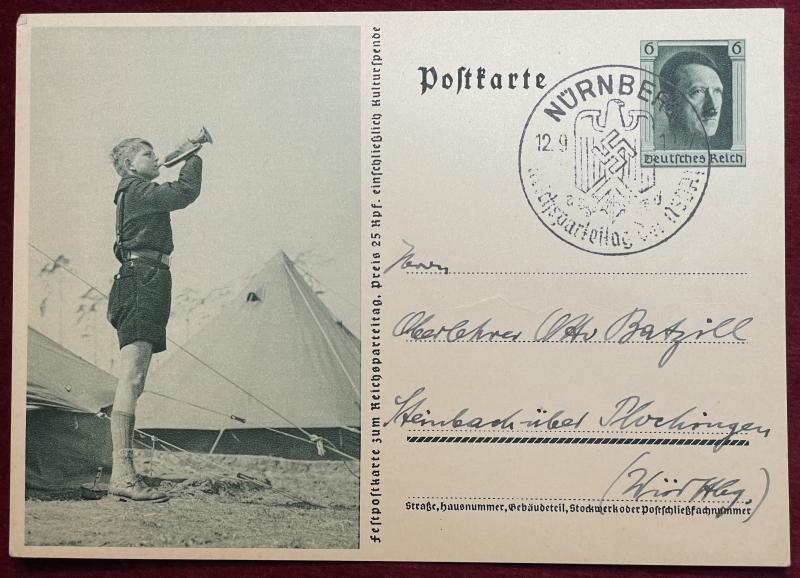 Festpostkarte zum Reichsparteitag. Preis 25 Rpf. einschließlich Kulturspende
Postkarte
6 6
Deutsches Reich
NÜRNBERG
12.9
Reichsparteitag der NSDAP
Herrn
Oberlehrer Otto Batzill
Steinbach über Plochingen
(Württbg.)
Straße, Hausnummer, Gebäudeteil, Stockwerk oder Postschließfachnummer